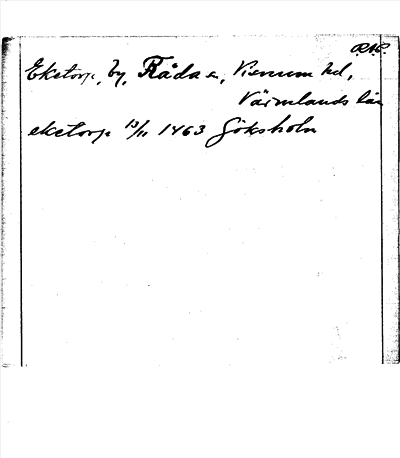 R.N.
Eketorp, by, Råda sn, Visnum hd,
Värmlands län
eketorp 13/11 1463 Göksholm